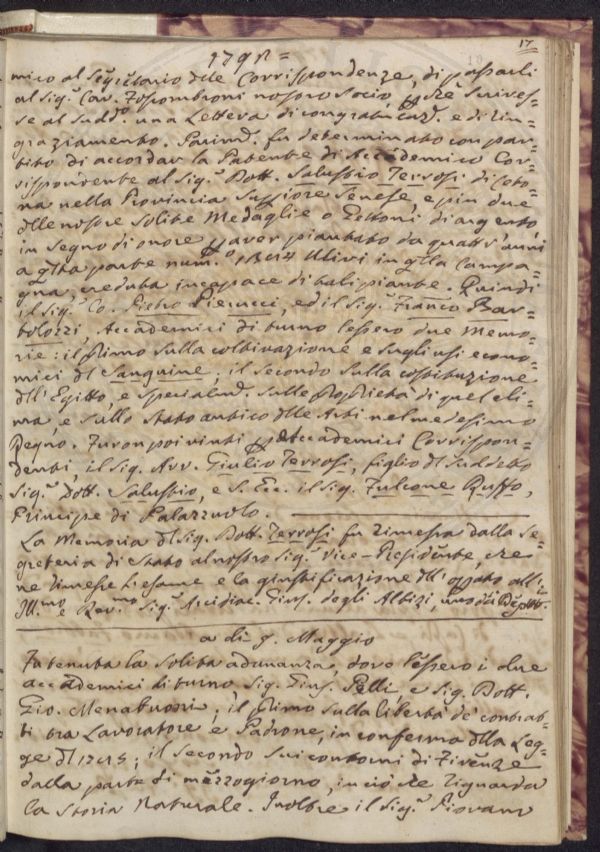 17
1792 =
mico al Segretario delle Corrispondenze, di passarli
al Sig.r Cav. Fossombroni nostro Socio, che scrives=
se al sudd.o una Lettera di congratulaz. e di rin=
graziamento. Parim. fu determinato con par=
tito di accordar la Patente di Accademico Cor=
rispondente al Sig.r Dott. Salustio Terrosi di Ceto=
na nella Provincia Superiore Senese, e più due
delle nostre solite Medaglie o Gettoni d'argento
in segno di onore p aver piantato da quattr'anni
a q.ta parte num.o Ulivi in q.lla Campa=
gna, creduta incapace di tali piante. Quindi
il Sig.r Co. Pietro Pierucci, ed il Sig.r Franco Bar=
tolozzi, Accademici di turno lessero due Memo=
rie: il primo sulla coltivazione e sugli usi econo=
mici del Sanguine; il secondo sulla costituzione
dell'Egitto, e specialm. sulle Proprietà di quel cli=
ma, e sullo stato antico delle Arti nel medesimo
Regno. Furon poi vinti p Accademici Corrispon=
denti, il Sig. Avv. Giulio Terrosi, figlio del suddetto
Sig.r Dott. Salustio, e S. Ecc. il Sig. Fulcone Ruffo,
Principe di Palazzuolo.
La Memoria del Sig. Dott. Terrosi fu rimessa dalla Se=
greteria di Stato al nostro Sig.r Vice-Presidente, che
ne rimesse l'esame e la giustificazione dell' all'
Ill.mo e Rev.mo Sig.r Arcidiac. Gius. degli Albizi, uno dei Deput.
a di 9. Maggio
Fu tenuta la solita adunanza, dove lessero i due
Accademici di turno Sig. Gius. Pelli, e Sig. Dott.
Gio. Menabuoni; il primo sulla libertà de' contrat=
ti tra Lavoratore e Padrone, in conferma della Leg=
ge del ; il secondo sui contorni di Firenze
dalla parte di mezzogiorno, in ciò che riguarda
la Storia Naturale. Inoltre il Sig.r Piovano